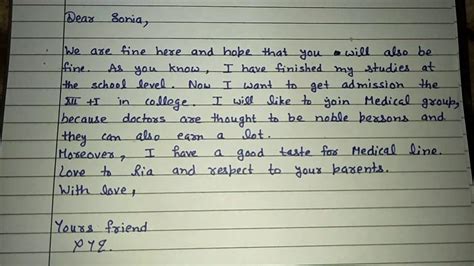 Dear Sonia,
We are fine here and hope that you will also be
fine. As you know, I have finished my studies at
the school level. Now I want to get admission the
XII +I in college. I will like to join Medical group,
because doctors are thought to be noble persons and
they can also earn a lot.
Moreover, I have a good taste for Medical line.
Love to Ria and respect to your parents.
With love,
Yours friend
XYZ.